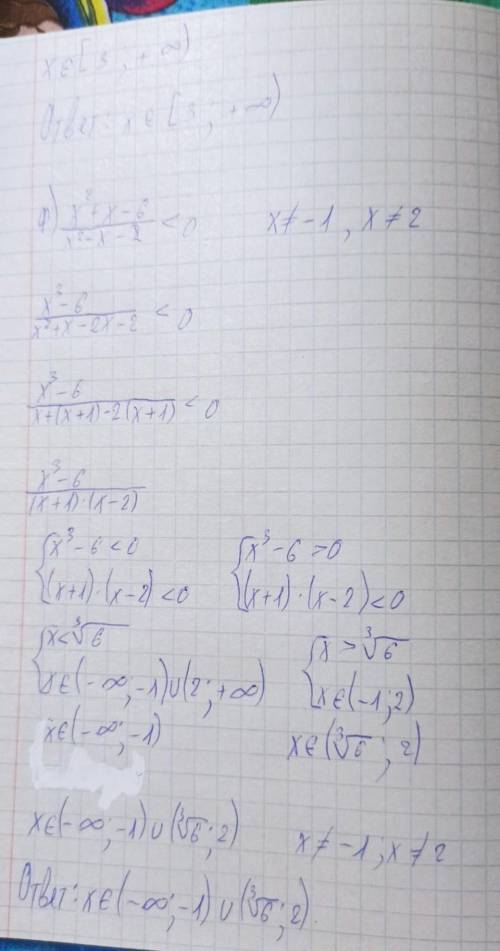 x∈[3 ; +∞)
Ответ: x∈[3 ; +∞)
ф) (x²+x-6)/(x²-x-2) < 0    x≠-1 , x≠2
(x³-6)/(x²+x-2x-2) < 0
(x³-6)/(x+(x+1)-2(x+1)) < 0
(x³-6)/((x+1)·(x-2))
{x³-6<0    {x³-6>0
(x+1)·(x-2)<0    (x+1)·(x-2)<0
{x<∛6    {x>∛6
x∈(-∞;-1)∪(2;+∞)    x∈(-1;2)
x∈(-∞;-1)    x∈(∛6 ; 2)
x∈(-∞;-1)∪(∛6;2)    x≠-1;x≠2
Ответ: x∈(-∞;-1)∪(∛6;2).